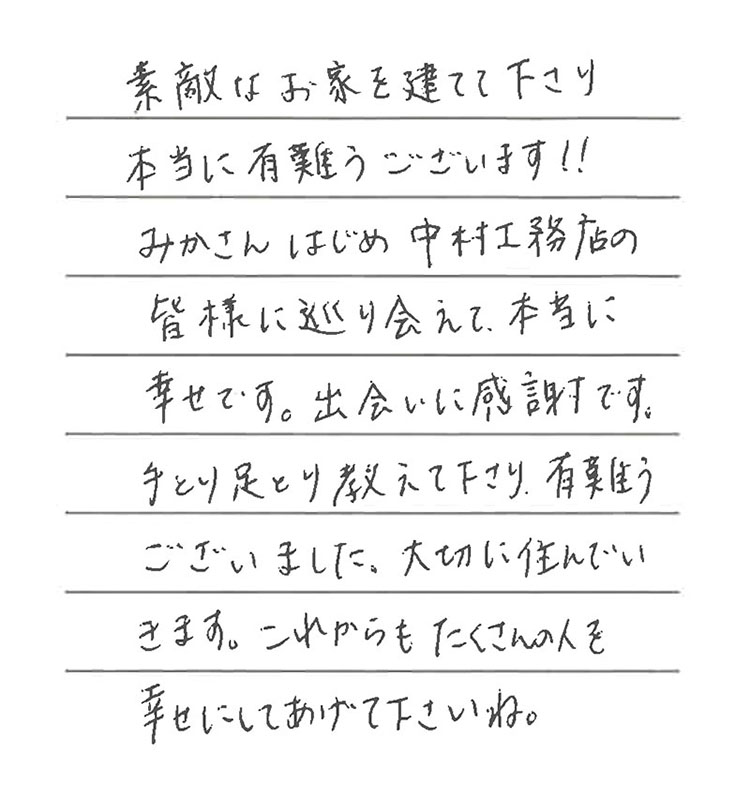 素敵なお家を建てて下さり
本当に有難うございます!!
みかさんはじめ中村工務店の
皆様に巡り会えて、本当に
幸せです。出会いに感謝です。
手とり足とり教えて下さり、有難う
ございました。大切に住んでい
きます。これからもたくさんの人を
幸せにしてあげて下さいね。